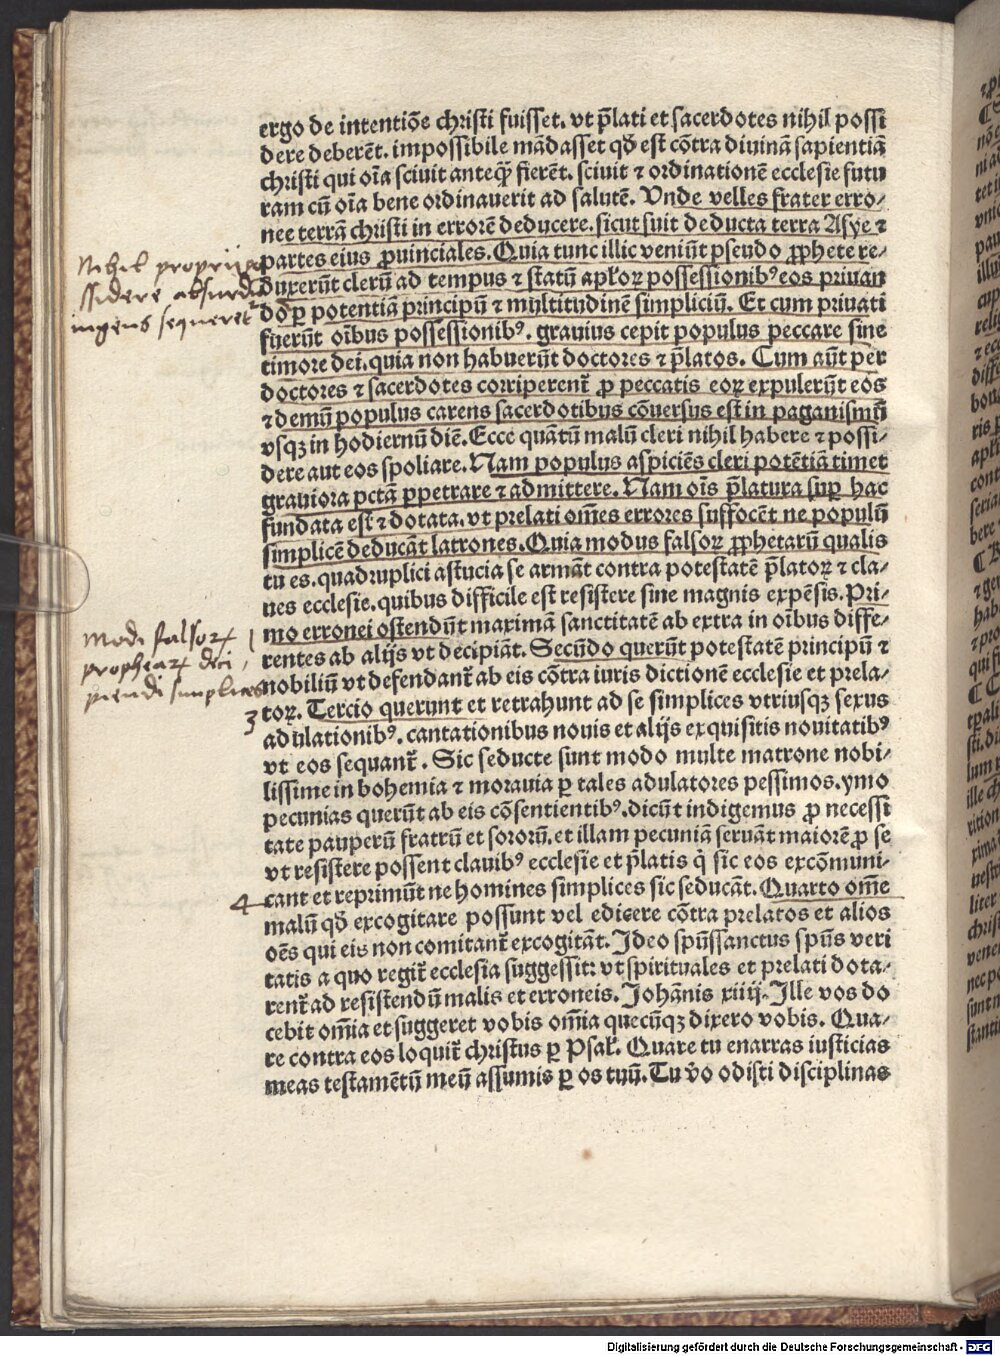 ergo de intentiōe christi fuisset. vt p̄lati et sacerdotes nihil possi
dere deberēt. impossibile mādasset qđ est cōtra diuinā sapientiā
christi qui oīa sciuit anteqꝙ̄ fierēt. sciuit ⁊ ordinationē ecclesie futu
ram cū oīa bene ordinauerit ad salutē. Vnde velles frater erro⸗
nee terrā christi in errorē deducere. sicut fuit deducta terra Asye ⁊
partes eius ꝓuinciales. Quia tunc illic veniūt pseudo ꝓphete re⸗
duxerūt clerū ad tempus ⁊ statū apľoꝝ possessionibꝰ eos priuan
do ꝑ potentiā principū ⁊ multitudinē simpliciū. Et cum priuati
fuerūt oībus possessionibꝰ. grauius cepit populus peccare sine
timore dei. quia non habuerūt doctores ⁊ p̄latos. Cum aūt per
doctores ⁊ sacerdotes corriperent᷑ ꝓ peccatis eoꝝ expulerūt eos
⁊ demū populus carens sacerdotibus cōuersus est in paganismū
vsqꝫ in hodiernū diē. Ecce quātū malū cleri nihil habere ⁊ possi⸗
dere aut eos spoliare. Nam populus aspiciēs cleri potētiā timet
grauiora pctā ꝑpetrare ⁊ admittere. Nam oīs p̄latura suꝑ hac
fundata est ⁊ dotata. vt prelati om̄es errores suffocēt ne populū
simplicē deducāt latrones. Quia modus falsoꝝ ꝓphetarū qualis
tu es. quadruplici astucia se armāt contra potestatē p̄latoꝝ ⁊ cla⸗
ues ecclesie. quibus difficile est resistere sine magnis expēsis. Pri⸗
mo erronei ostendūt maximā sanctitatē ab extra in oībus diffe⸗
rentes ab alijs vt decipiāt. Secūdo querūt potestatē principū ⁊
nobiliū vt defendant᷑ ab eis cōtra iuris dictionē ecclesie et prela⸗
toꝝ. Tercio querunt et retrahunt ad se simplices vtriusqꝫ sexus
adulationibꝰ. cantationibus nouis et alijs exquisitis nouitatibꝰ
vt eos sequant᷑. Sic seducte sunt modo multe matrone nobi⸗
lissime in bohemia ⁊ morauia ꝑ tales adulatores pessimos. ymo
pecunias querūt ab eis cōsentientibꝰ. dicūt indigemus ꝓ necessi
tate pauperū fratrū et sororū. et illam pecuniā seruāt maiorē ꝓ se
vt resistere possent clauibꝰ ecclesie et p̄latis q̄ sic eos excōmuni⸗
cant et reprimūt ne homines simplices sic seducāt. Quarto om̄e
malū qđ excogitare possunt vel edicere cōtra prelatos et alios
oēs qui eis non comitant᷑ excogitāt. Ideo spūssanctus spūs veri
tatis a quo regit᷑ ecclesia suggessit: vt spirituales et prelati dota⸗
rent᷑ ad resistendū malis et erroneis. Johānis xiiij. Ille vos do
cebit om̄ia et suggeret vobis om̄ia quecūqꝫ dixero vobis. Qua⸗
re contra eos loquit᷑ christus ꝑ Psaľ. Quare tu enarras iusticias
meas testamētū meū assumis ꝑ os tuū. Tu v̄o odisti disciplinas
Nihil proprij po
ssidere absurdū
ingens sequeret᷑
Modi falsoꝝ
prophetaꝝ deci
piendi simplices
1
3
4
Digitalisierung gefördert durch die Deutsche Forschungsgemeinschaft - DFG